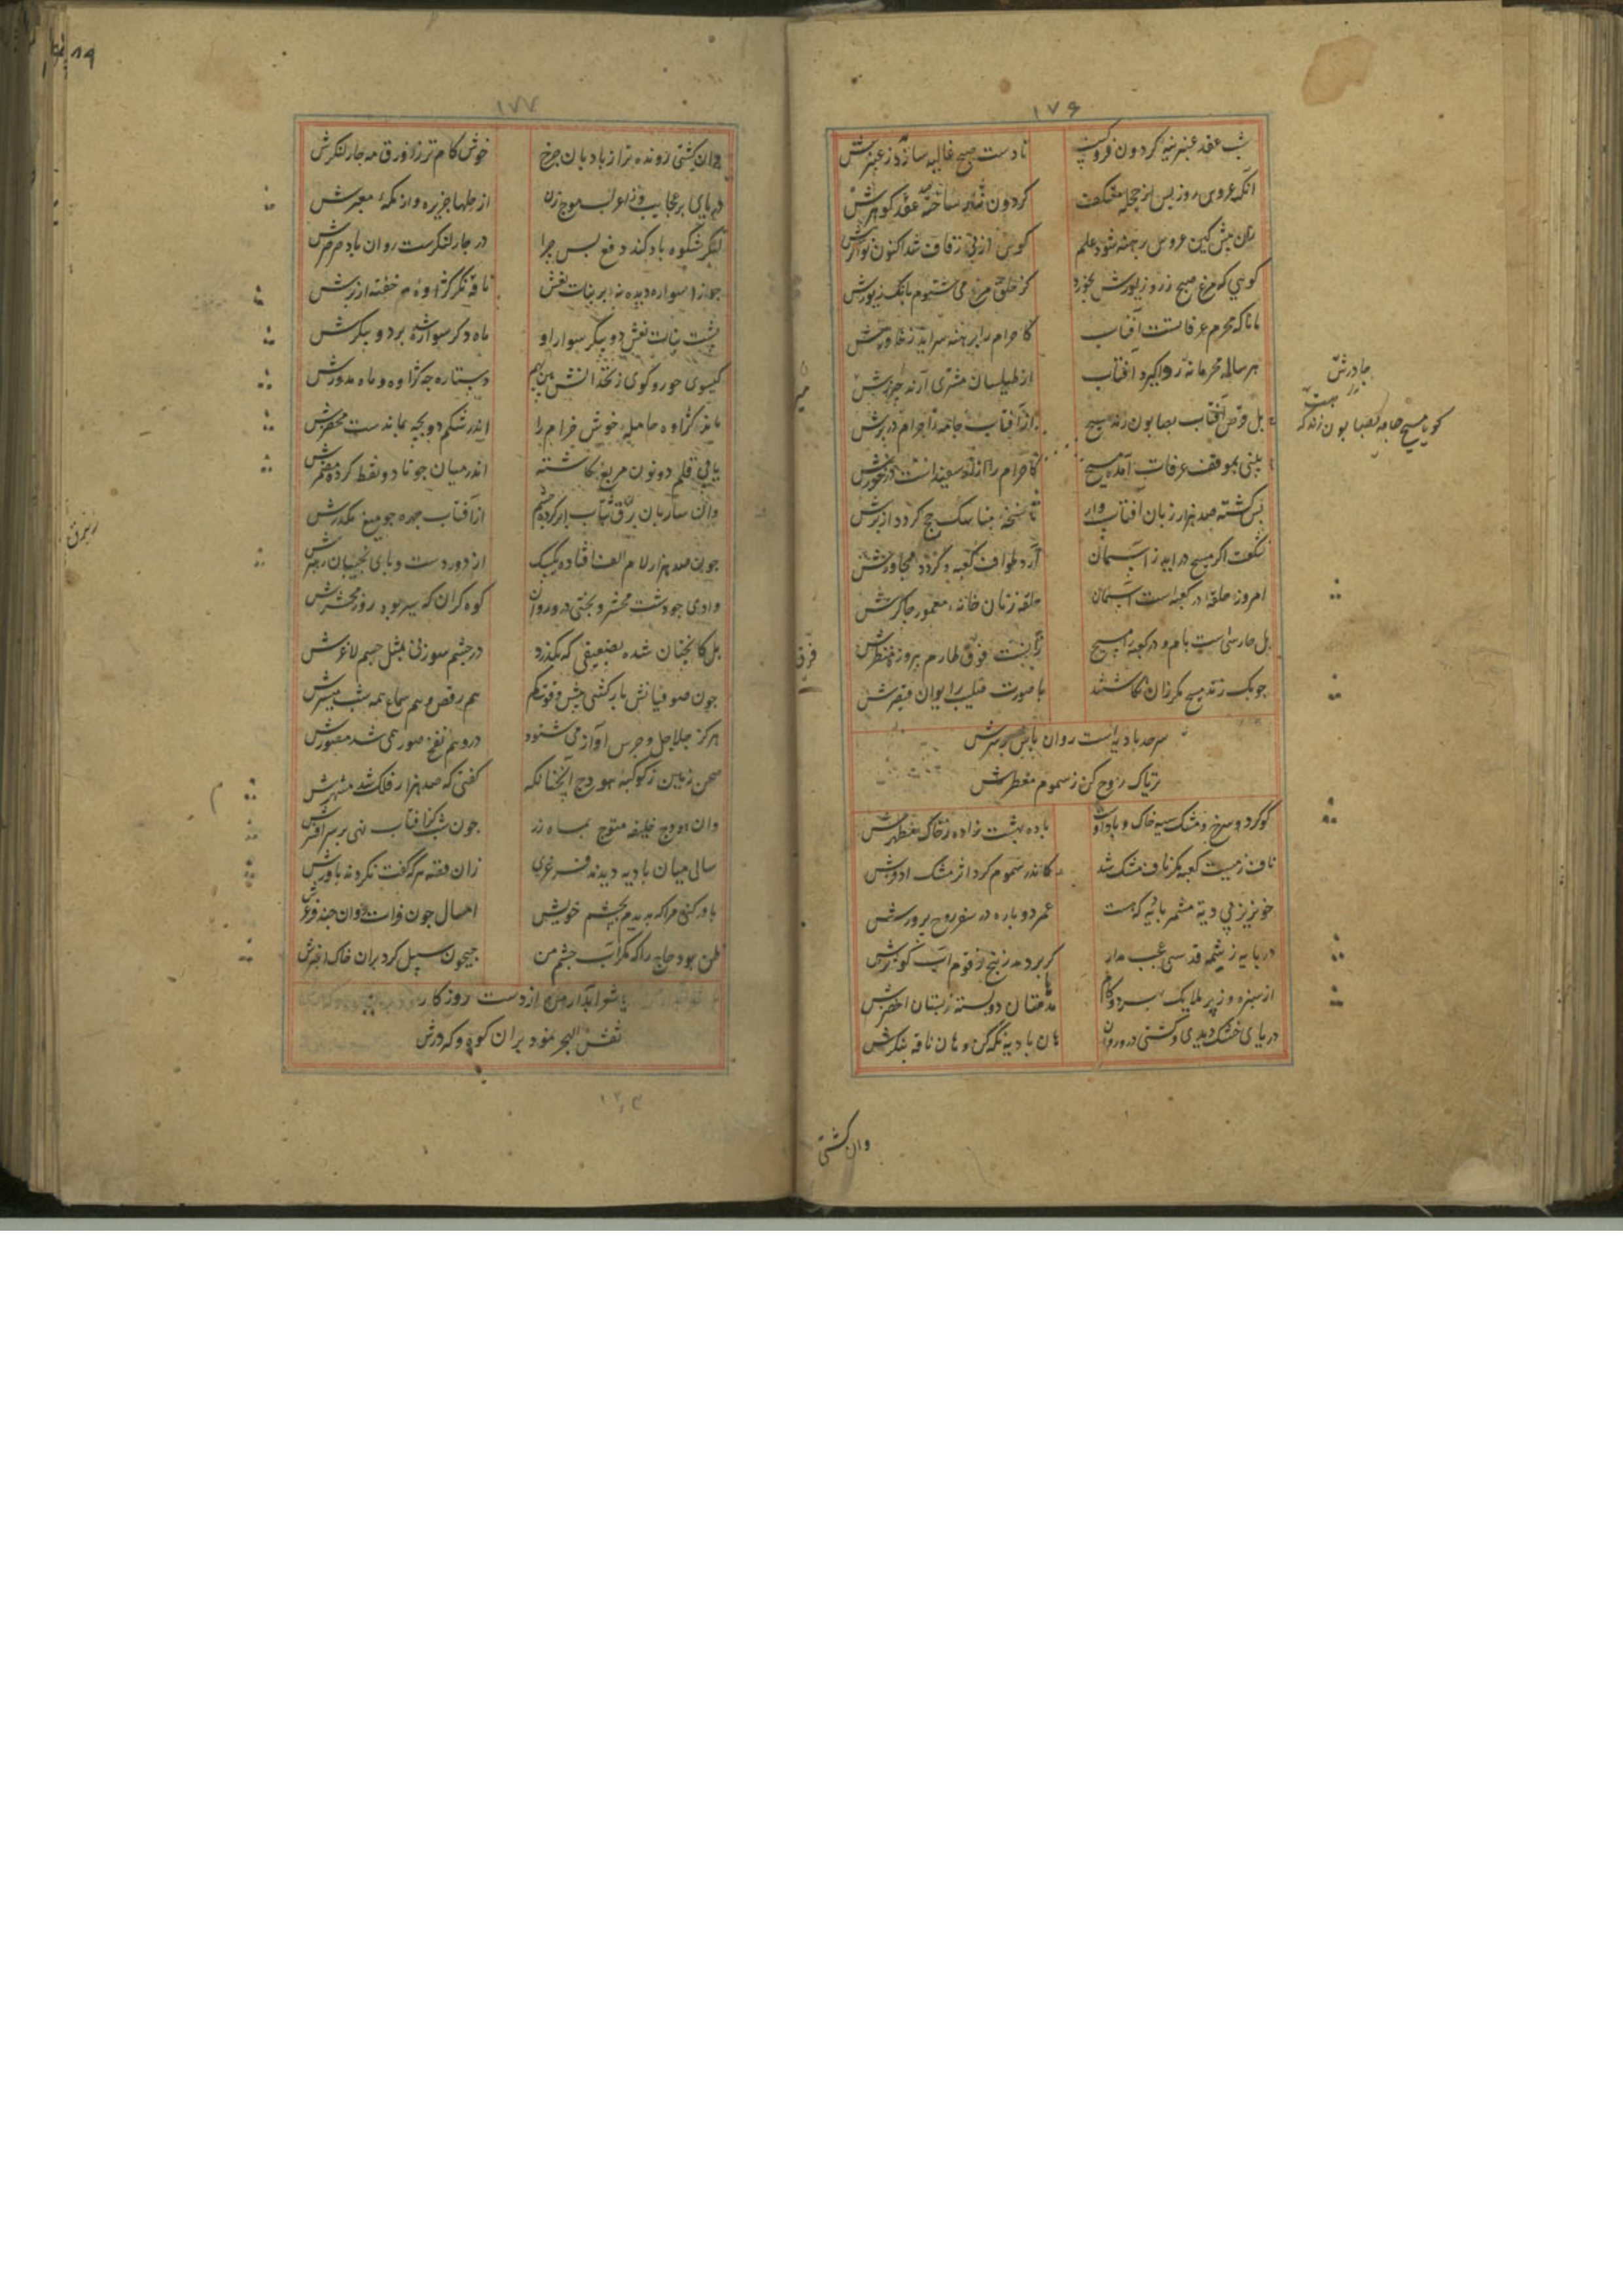 ۱۷۶
شب عقد عنبرینه کردون فروکسست تا دست صبح غالیه سازد ز عنبرش
آنک عروس روز پس از حجله معتکف کردون نثار ساخته عقد کوهرش
زان پیش کین عروس برهنه شود علم کوس از پی زفاف شد اکنون نواکرش
کویی که مرغ صبح زر و زیورش بخورد کز حلق مرغ می شنوم بانک زیورش
مانا که محرم عرفاتست آفتاب کاحرام را برهنه سرآید ز خاورش
هر سال محرمانه ردا کیرد آفتاب از طیلسان مشتری آرند میزرش
بل قرص آفتاب بصابون زند مسیح کاحرام را ازار سفیدست در خورش
بینی بموقف عرفات آمده مسیح از آفتاب جامه احرام در برش
پس کشته صد هزار زبان آفتاب وار تا نسخه مناسک حج کردد از برش
نشکفت اکر مسیح درآید ز آسمان آرد طواف کعبه و کردد مجاورش
امروز حلقه در کعبه است آسمان حلقه زنان خانه معمور چاکرش
بل حارسی است بام و در کعبه را مسیح زانست فوق طارم پیروزه منظرش
چوبک زند مسیح مکر زان نکاشتند با صورت صلیب بر ایوان قیصرش
سرحد بادیه است روان باش بر سرش
تریاک روح کن ز سموم معطرش
کوکرد سرخ و مشک سیه خاک و باد اوست باد بهشت زاده ز خاک مطهرش
ناف زمیست کعبه مکر ناف مشک شد کاندر سموم کرد اثر مشک اذفرش
خونریز بی دیت مشمر بادیه که هست عمر دوباره در سفر روح پرورش
در بادیه ز شمه قدسی عجب مدار کر بر دمد ز بیخ زقوم آب کوثرش
از سبزه و ز پر ملایک بهر دو کام مدهامتان دو بسته ز بستان اخضرش
دریای خشک دیدی و کشتی درو روان هان بادیه نکه کن و هان ناقه بنکرش
چادرش
کویا مسیح جامه بصابون زند که
فرق
وان کشتی
۱۷۷
وان کشتی رونده تر از بادبان چرخ خوش کام تر ز زورق مه چار لنکرش
دریای پر عجایب وز اعراب موج زن از حلها جزیره و از مکه معبرش
لنکر شکوه باد کند دفع پس چرا در چار لنکرست روان باد صرصرش
جوزا سوار دیده نه بر بنات نعش ناقه نکر کژاوه و هم خفته از برش
پشت بنات نعش دو پیکر سوار او ماه دکر سوار شده بر دو پیکرش
کیسوی حور و کوی زنخدانش بین بهم دستارچه کژاوه و ماه مدورش
ماند کژاوه حامله خوش خرام را اندر شکم دو بچه بماندست محضرش
یا بی قلم دو نون مربع نکاشته اندر میان چو تا دو نقط کرده مضمرش
وان ساربان ز برق سراب ابر کرده چشم از آفتاب چهره چو میغ مکدرش
چون صد هزار لام الف افتاده یک بیک از دور دست و پای نجیبان رهبرش
وادی چو دشت محشر و بختی درو روان کوه کران که سیر بود روز محشرش
بل کانچنان شده بضعیفی که بکذرد در چشم سوزنی بمثل جسم لاغرش
چون صوفیانش بارکشی پیش و قوت کم هم رقص و هم سماع همه شب میسرش
هر کز جلاجل و جرس آواز می شنود در وهم نفخ صور همی شد مصورش
صحن زمین ز کوکبه هودج آنچنانکه کفتی که صد هزار فلک شد مشهرش
وان هودج خلیفه متوج بماه زر چون شب کز آفتاب نهی بر سر افسرش
سالی میان بادیه دیدند فرغری زان فتنه هر که کفت نکردند باورش
باور کنی مرا که بدیدم بچشم خویش امسال چون فرات روان چند فرغرش
ظن بود حاج را که مکر آب چشم من جیحون سبیل کرد بران خاک اغبرش
یا شوابدار من از دست روزکار
نقش الحجر نمود بران کوه و کردرش